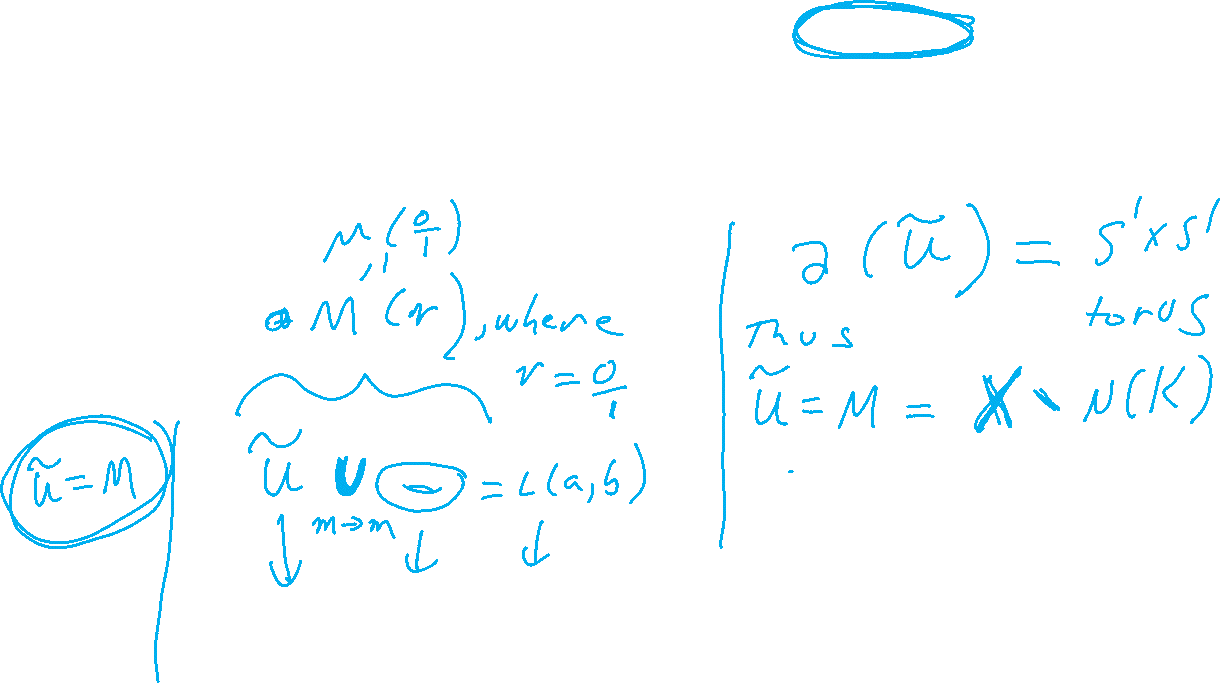 ũ = M
M, (0/1)
M (r), where
r = 0/1
ũ ∪ = L(a,b)
m→m
∂(ũ) = S¹×S¹
torus
Thus
ũ = M = X \ N(K)